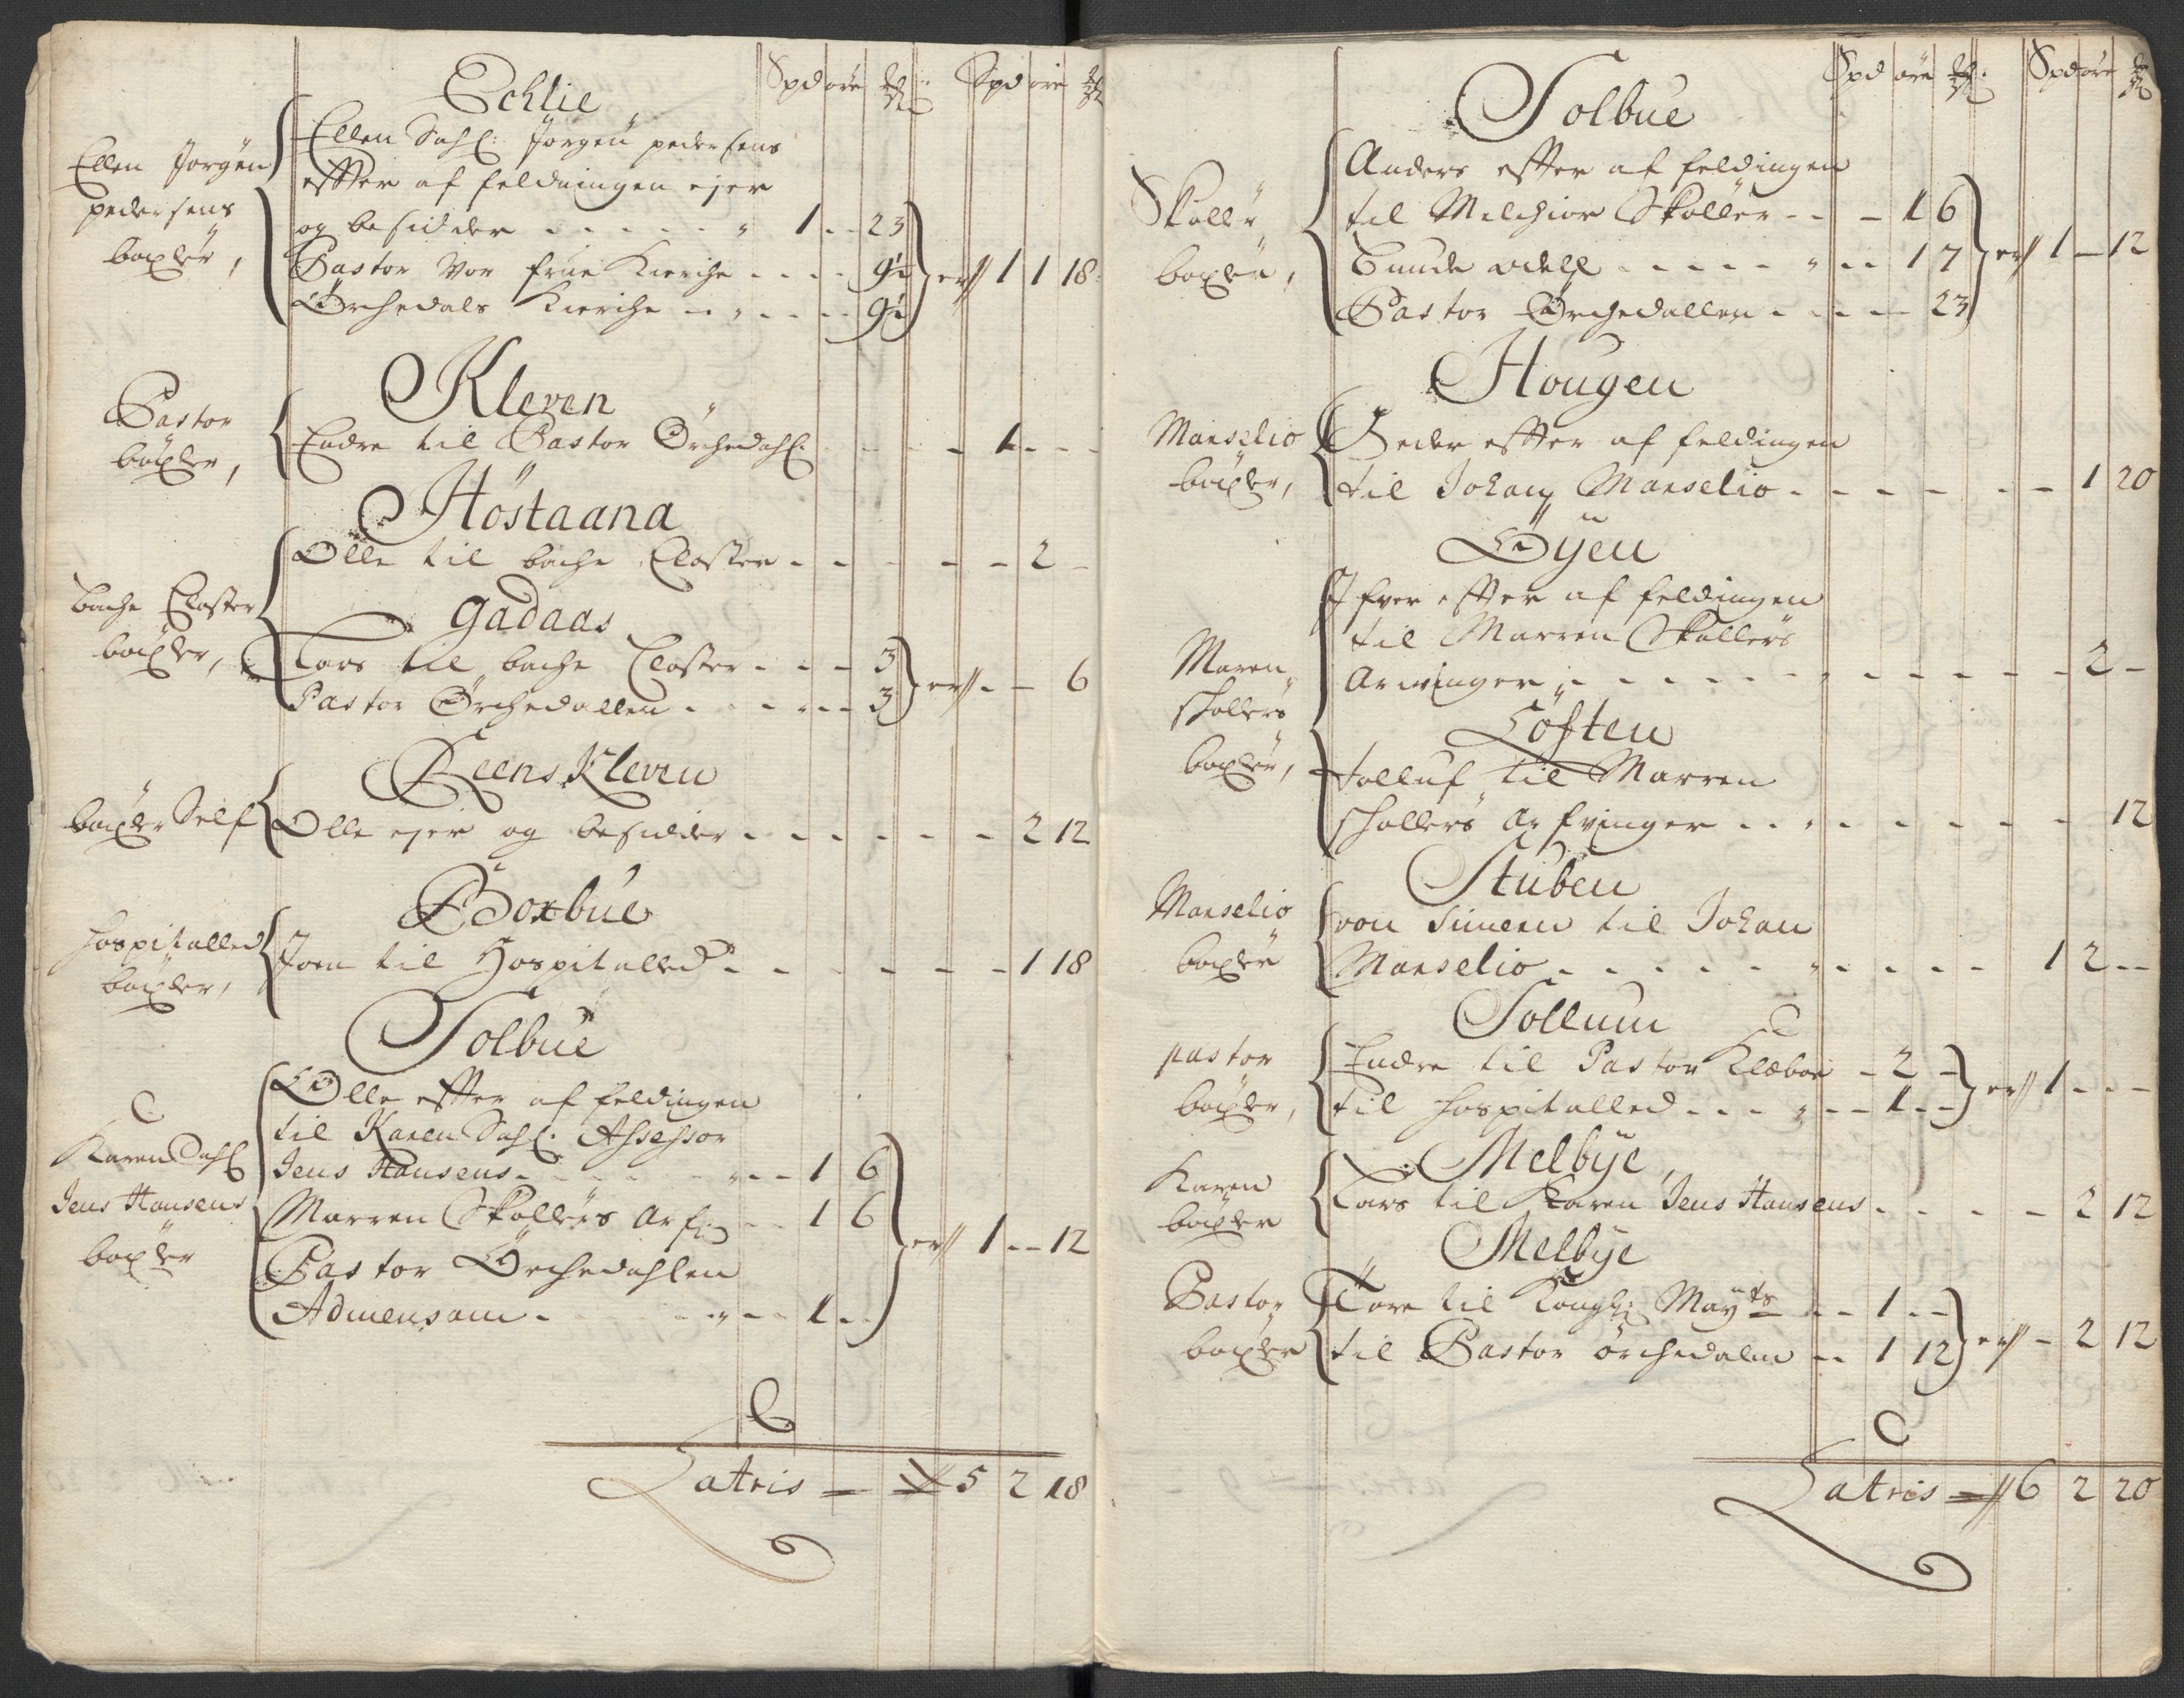 Spd öre Spd öre
Echlie
Ellen Jørgen
pedersens
böxler,
Ellen Sahl: Jørgen pedersens
effter af feldningen ejer
og besidder - - - - - " 1 - - 23
Pastor Vor frue Kierche - - - - 9½
Ørchedals Kierche - - " - - - - 9½ er// 1 1 18
Kleven
Pastor
böxler,
Endre til Pastor Örchedahl: - - - - 1 - - -
Höstaana
Olle til bache Closter - - - - - 2 -
Bache Closter
böxler,
Gadaas
Lars til bache Closter - - - 3
Pastor Örchedallen - - - - - - 3 er// - - 6
Reens Kleven
böxler Self
Olle ejer og besidder - - - - - - - 2 12
Boxbue
Hospitalled
böxler,
Joen til Hospitalled - - - - - - - 1 18
Solbue
Karen Sahl
Jens Hansens
böxler
Olle effter af feldingen
til Karen Sahl: Assessor
Jens Hansens - - - - - - " - - 1 6
Marren Skøllers Arf: - - 1 6
Pastor Örchedahlen
Admensam - - - - - " - - 1 - - er// 1 - - 12
Latris — // 5 2 18
Spd öre Spd öre
Solbue
Skøller
böxler,
Anders effter af feldingen
til Melchior Skøller - - - 1 6
Bunde odell - - - - - " - - 17
Pastor Örchedallen - - - - - 23 er// 1 - 12
Hougen
Manselio
böxler,
Peder effter af feldingen
til Johan Manselio - - - - - - - 1 20
Öyen
Maren
skøllers
böxler,
Ifver effter af feldingen
til Marren Skøllers
Arvinger - - - - - - - - - - - 2 -
Löften
Tolluf til Marren
skøllers Arfvinger - - " - - - - - - 12
Stuben
Manselio
böxler
von Simeen til Johan
Manselio - - - - - " - - - - 1 2 - -
Sollum
pastor
böxler,
Endre til Pastor Klæboe - 2 -
til Hospitalled - - - " - - 1 - - er// 1 - - -
Melbye
Karen
böxler
Lars til Karen Jens Hansens - - - - - 2 12
Melbye
Pastor
böxler
Tore til Kongl: Mayts - - 1 - -
til Pastor örchedalen - - 1 12 er// - 2 12
Latris — // 6 2 20